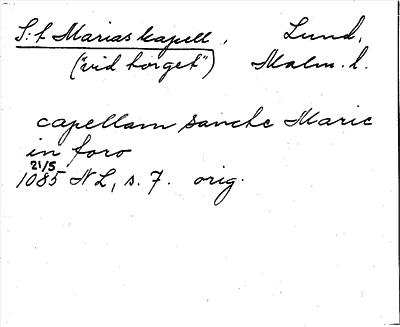 S:t Marias kapell, Lund,
("vid torget") Malm. l.
capellam sancte Marie
in foro
21/5
1085 NL, s. 7. orig.